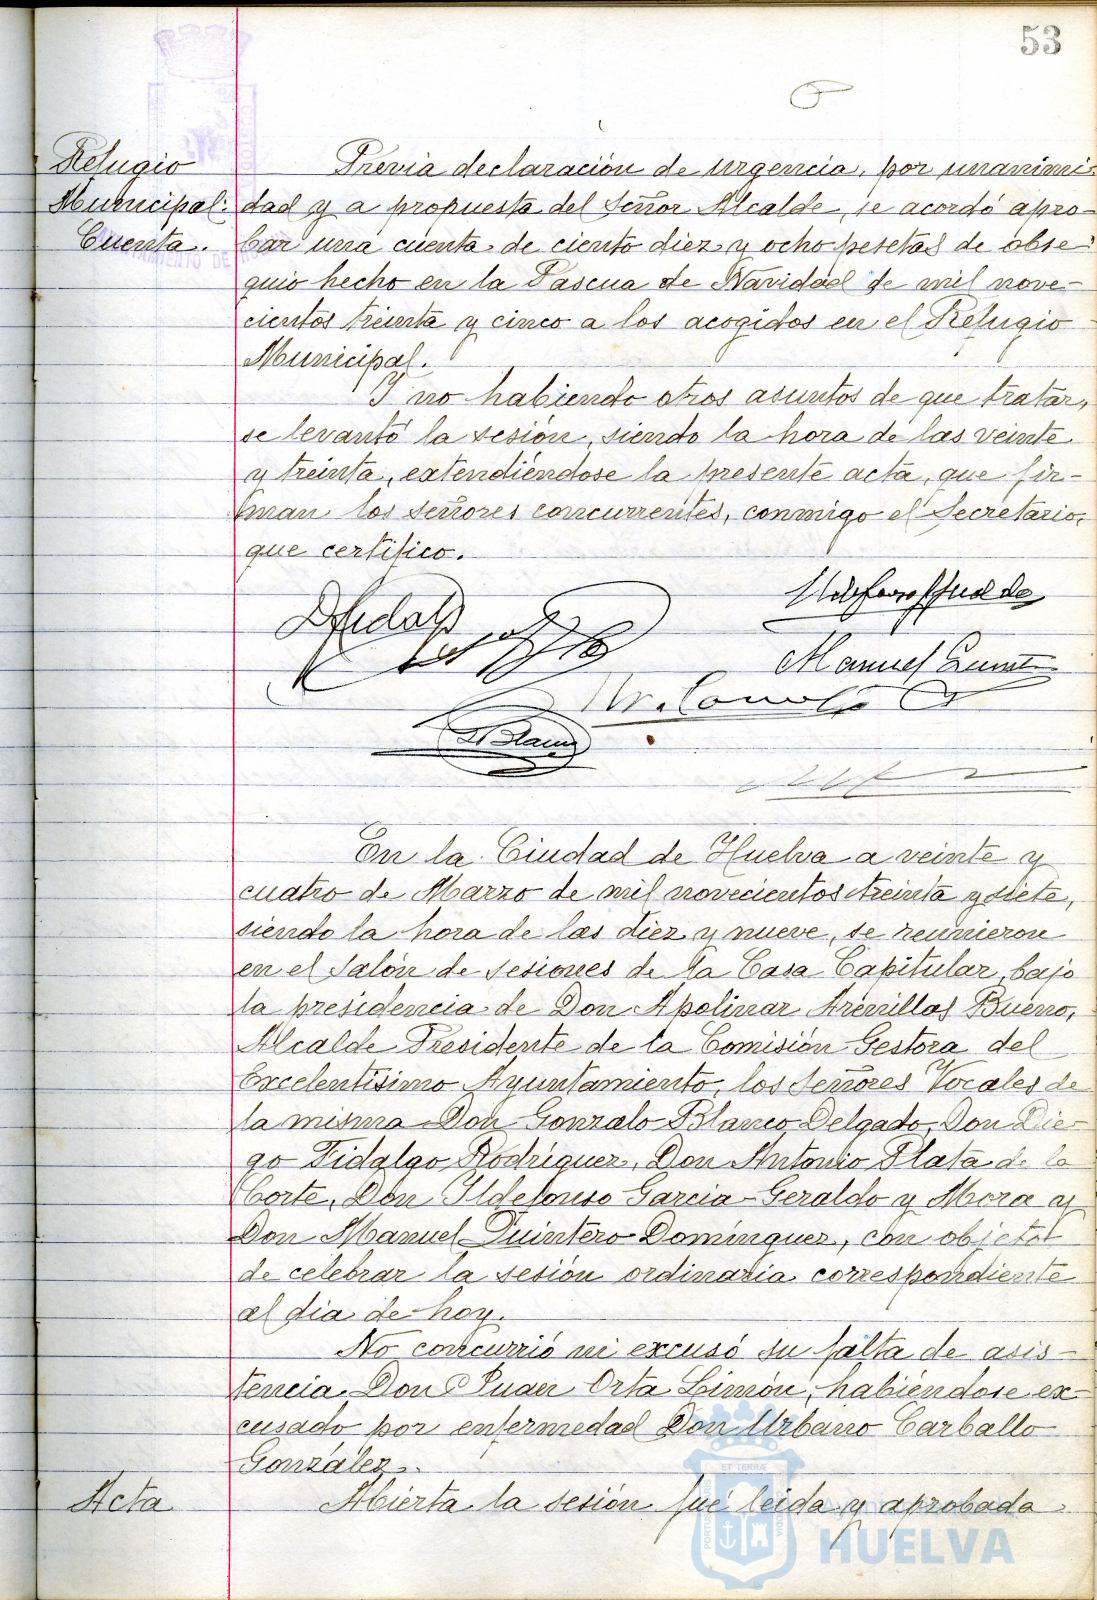 53
Refugio
Municipal.
Cuenta.
Previa declaración de urgencia, por unanimi-
dad y a propuesta del Señor Alcalde, se acordó apro-
bar una cuenta de ciento diez y ocho pesetas de obse-
quio hecho en la Pascua de Navidad de mil nove-
cientos treinta y cinco a los acogidos en el Refugio
Municipal.
Y no habiendo otros asuntos de que tratar,
se levantó la sesión, siendo la hora de las veinte
y treinta, extendiéndose la presente acta, que fir-
man los señores concurrentes, conmigo el Secretario,
que certifico.
D Fidalgo
Manuel Quintero
G Blanco
En la Ciudad de Huelva a veinte y
cuatro de Marzo de mil novecientos treinta y siete,
siendo la hora de las diez y nueve, se reunieron
en el salón de sesiones de la Casa Capitular, bajo
la presidencia de Don Apolinar Arenillas Bueno,
Alcalde Presidente de la Comisión Gestora del
Excelentísimo Ayuntamiento, los señores Vocales de
la misma Don Gonzalo Blanco Delgado, Don Die-
go Fidalgo Rodríguez, Don Antonio Plata de la
Corte, Don Ildefonso Garcia-Geraldo y Mora y
Don Manuel Quintero Domínguez, con objeto
de celebrar la sesión ordinaria correspondiente
al dia de hoy.
No concurrió ni excusó su falta de asis-
tencia Don Juan Orta Limón, habiéndose ex-
cusado por enfermedad Don Urbano Carballo
González.
Acta
Abierta la sesión fué leida y aprobada
HUELVA